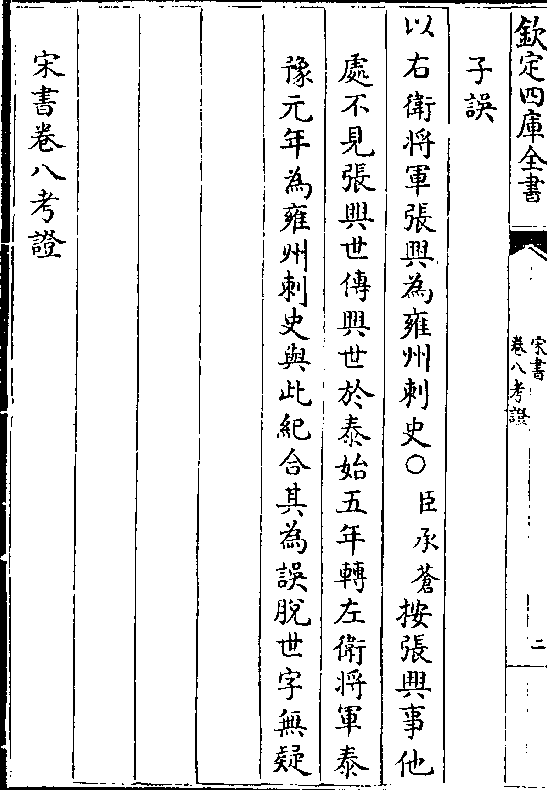 欽定四庫全書
宋書
卷八考證
二
子誤
以右衛將軍張興為雍州刺史○臣承蒼按張興事他
處不見張興世傳興世於泰始五年轉左衛將軍泰
豫元年為雍州刺史與此紀合其為誤脫世字無疑
宋書卷八考證